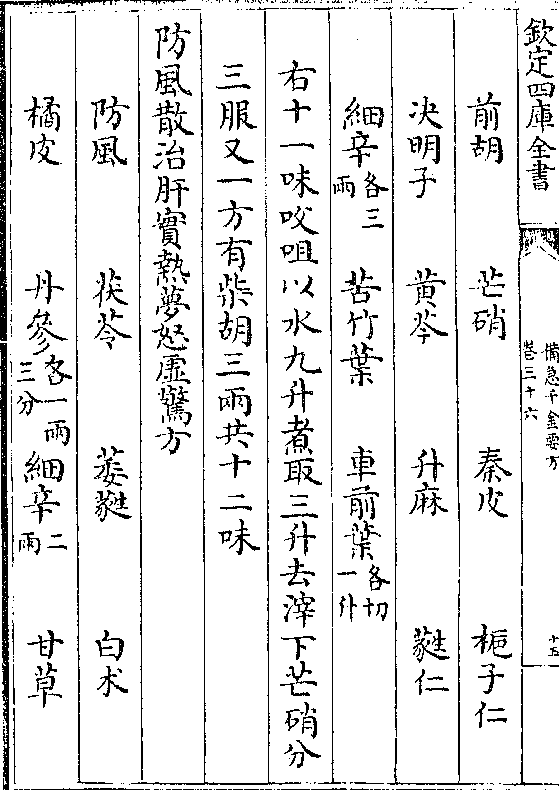 欽定四庫全書
備急千金要方
卷三十六
十五
前胡 芒硝 秦皮 梔子仁
決明子 黃芩 升麻 蕤仁
細辛各三兩 苦竹葉 車前葉各切一升
右十一味㕮咀以水九升煮取三升去滓下芒硝分
三服又一方有柴胡三兩共十二味
防風散治肝實熱夢怒虛驚方
防風 茯苓 萎蕤 白朮
橘皮 丹參各一兩三分 細辛二兩 甘草